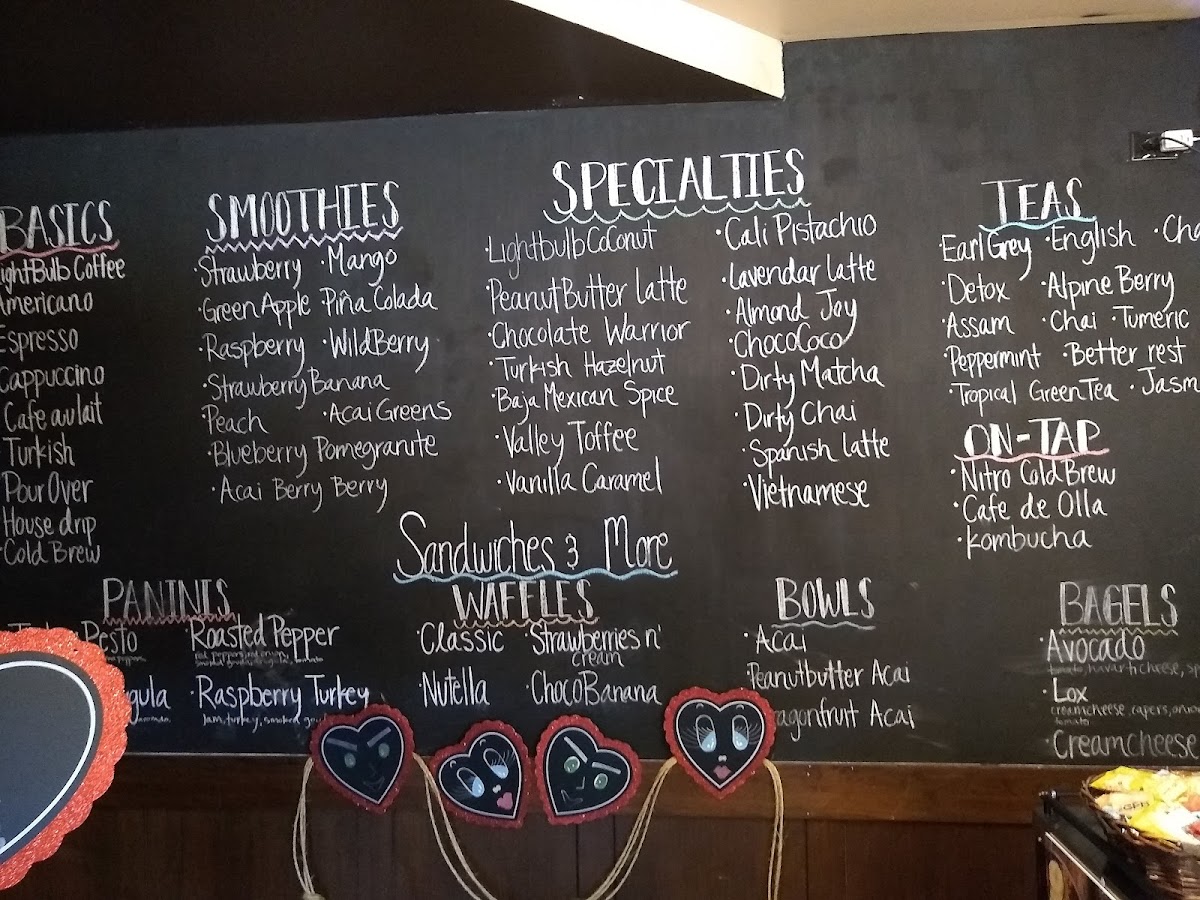 BASICS
LightBulb Coffee
Americano
Espresso
Cappuccino
Cafe au lait
Turkish
Pour Over
House drip
Cold Brew
SMOOTHIES
·Strawberry ·Mango
·Green Apple Piña Colada
·Raspberry ·WildBerry
·Strawberry Banana
Peach ·Acai Greens
·Blueberry Pomegranite
·Acai Berry Berry
SPECIALTIES
·Lightbulb Coconut
·Peanut Butter latte
·Chocolate Warrior
·Turkish Hazelnut
·Baja Mexican Spice
·Valley Toffee
·Vanilla Caramel
·Cali Pistachio
·Lavendar Latte
·Almond Joy
·ChocoCoco
·Dirty Matcha
·Dirty Chai
·Spanish latte
·Vietnamese
TEAS
·Earl Grey ·English
·Detox ·Alpine Berry
·Assam ·Chai ·Tumeric
·Peppermint ·Better rest
·Tropical Green Tea
ON-TAP
·Nitro Cold Brew
·Cafe de Olla
·Kombucha
Sandwiches & More
PANINIS
Pesto
·Roasted Pepper
·Raspberry Turkey
Jam, turkey, smoked
WAFFLES
·Classic ·Strawberries n'
cream
·Nutella ·ChocoBanana
BOWLS
·Acai
·Peanutbutter Acai
Acai
BAGELS
·Avocado
·Lox
creamcheese, capers,
tomato
·Creamcheese